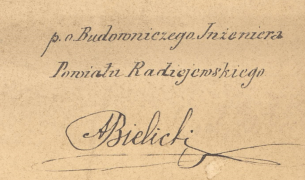 p.o. Budowniczego Inżeniera
Powiatu Radziejewskiego
ABielicki